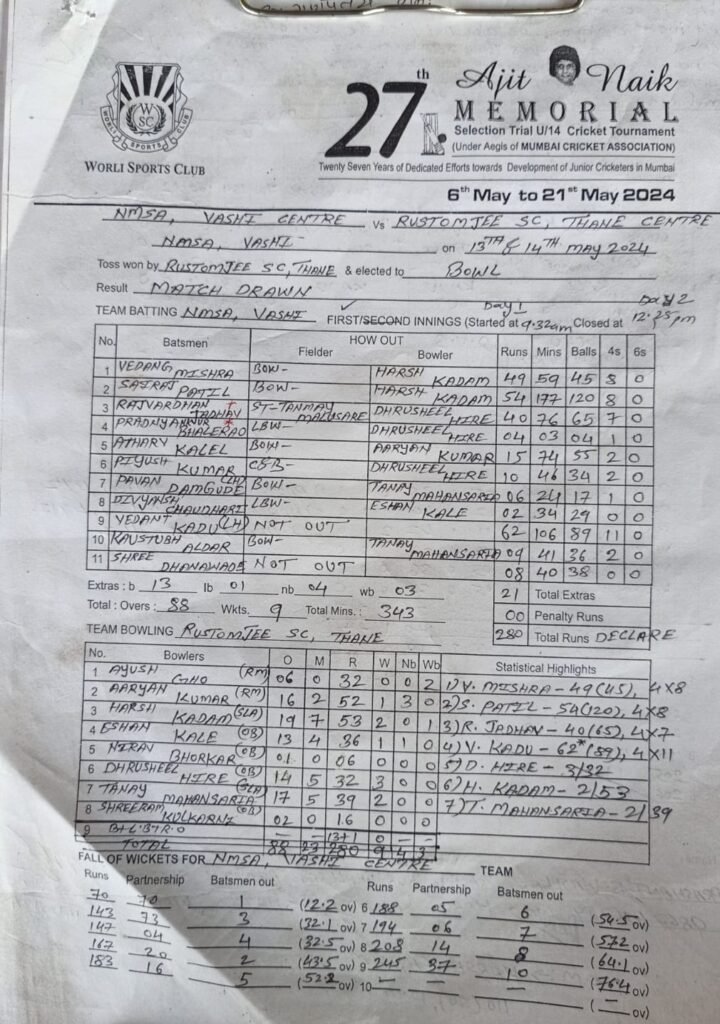 27th Ajit Naik
MEMORIAL
Selection Trial U/14 Cricket Tournament
(Under Aegis of MUMBAI CRICKET ASSOCIATION)
Twenty Seven Years of Dedicated Efforts towards Development of Junior Cricketers in Mumbai
WORLI SPORTS CLUB
WSC
WORLI SPORTS CLUB
6th May to 21st May 2024
NMSA, VASHI CENTRE Vs RUSTOMJEE SC, THANE CENTRE
NMSA, VASHI on 13TH & 14TH MAY 2024
Toss won by RUSTOMJEE SC, THANE & elected to BOWL
Result MATCH DRAWN
TEAM BATTING NMSA, VASHI FIRST/SECOND INNINGS (Started at Day 1 9.32am Closed at Day 2 12.25pm
No. Batsmen HOW OUT Fielder Bowler Runs Mins Balls 4s 6s
1 VEDANG MISHRA BOW- HARSH KADAM 49 59 45 8 0
2 SAIRAJ PATIL BOW- HARSH KADAM 54 177 120 8 0
3 RAJVARDHAN JADHAV ST-TANMAY MALUSARE DHRUSHEEL HIRE 40 76 65 7 0
4 PRADNYANKUR BHALERAO LBW- DHRUSHEEL HIRE 04 03 04 1 0
5 ATHARV KALEL BOW- AARYAN KUMAR 15 74 55 2 0
6 PIYUSH KUMAR C&B- DHRUSHEEL HIRE 10 46 34 2 0
7 PAVAN DAMGUDE (LH) BOW- TANAY MAHANSARIA 06 24 17 1 0
8 DIVYANSH CHAUDHARI LBW- ESHAN KALE 02 34 29 0 0
9 VEDANT KADU (LH) NOT OUT 62 106 89 11 0
10 KAUSTUBH ALDAR BOW- TANAY MAHANSARIA 09 41 36 2 0
11 SHREE DHANAWADE NOT OUT 08 40 38 0 0
Extras : b 13 lb 01 nb 04 wb 03 21 Total Extras
Total : Overs : 88 Wkts. 9 Total Mins : 343 00 Penalty Runs
280 Total Runs DECLARE
TEAM BOWLING RUSTOMJEE SC, THANE
No. Bowlers O M R W Nb Wb Statistical Highlights
1 AYUSH GHO (RM) 06 0 32 0 0 2 1) V. MISHRA - 49(45), 4X8
2 AARYAN KUMAR (RM) 16 2 52 1 3 0 2) S. PATIL - 54(120), 4X8
3 HARSH KADAM (SLA) 19 7 53 2 0 1 3) R. JADHAV - 40(65), 4X7
4 ESHAN KALE (OB) 13 4 36 1 1 0 4) V. KADU - 62*(89), 4X11
5 NIRAV BHORKAR (OB) 01 0 06 0 0 0 5) D. HIRE - 3/32
6 DHRUSHEEL HIRE (OB) 14 5 32 3 0 0 6) H. KADAM - 2/53
7 TANAY MAHANSARIA (SLA) 17 5 39 2 0 0 7) T. MAHANSARIA - 2/39
8 SHREERAM KULKARNI (OB) 02 0 16 0 0 0
9 B+LB+R.O — — 13+1 0 — —
TOTAL 88 23 280 9 4 3
FALL OF WICKETS FOR NMSA, VASHI CENTRE TEAM
Runs Partnership Batsmen out Runs Partnership Batsmen out
70 70 1 (12.2 ov) 6 188 05 6 (54.5 ov)
143 73 3 (32.1 ov) 7 194 06 7 (57.2 ov)
147 04 4 (32.5 ov) 8 208 14 8 (64.1 ov)
167 20 2 (43.5 ov) 9 245 37 10 (76.4 ov)
183 16 5 (52.2 ov) 10 — — — (— ov)